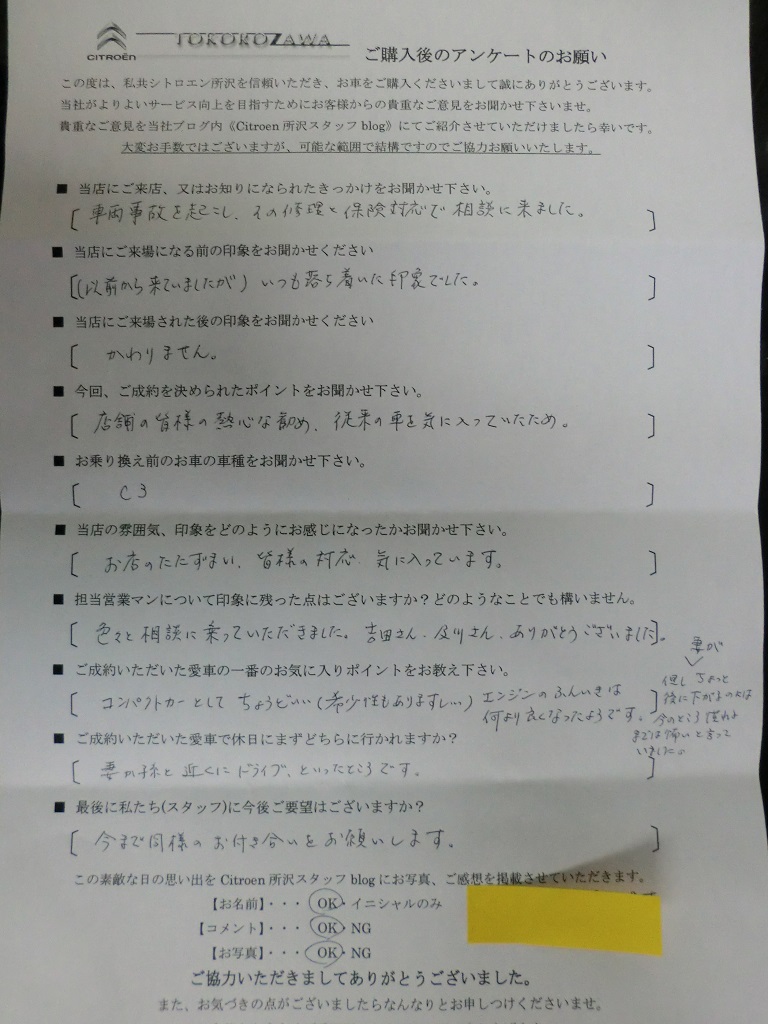 CITROËN
TOKOROZAWA
ご購入後のアンケートのお願い
この度は、私共シトロエン所沢を信頼いただき、お車をご購入くださいまして誠にありがとうございます。
当社がよりよいサービス向上を目指すためにお客様からの貴重なご意見をお聞かせ下さいませ。
貴重なご意見を当社ブログ内《Citroen 所沢スタッフ blog》にてご紹介させていただけましたら幸いです。
大変お手数ではございますが、可能な範囲で結構ですのでご協力お願いいたします。
■ 当店にご来店、又はお知りになられたきっかけをお聞かせ下さい。
[ 車両事故を起こし、その修理と保険対応で相談に来ました。 ]
■ 当店にご来場になる前の印象をお聞かせください
[ (以前から来ていましたが) いつも落ち着いた印象でした。 ]
■ 当店にご来場された後の印象をお聞かせください
[ かわりません。 ]
■ 今回、ご成約を決められたポイントをお聞かせ下さい。
[ 店舗の皆様の熱心な勧め、従来の車を気に入っていたため。 ]
■ お乗り換え前のお車の車種をお聞かせ下さい。
[ C3 ]
■ 当店の雰囲気、印象をどのようにお感じになったかお聞かせ下さい。
[ お店のたたずまい、皆様の対応、気に入っています。 ]
■ 担当営業マンについて印象に残った点はございますか？どのようなことでも構いません。
[ 色々と相談に乗っていただきました。吉田さん、及川さん、ありがとうございました。 ]
■ ご成約いただいた愛車の一番のお気に入りポイントをお教え下さい。
[ コンパクトカーとして ちょうどいい (希少性もありますし…) エンジンのふんいきは
何より良くなったようです。 ]
妻が
但し ちょっと
後に下がるのは
今のところ慣れる
までは怖いと言って
いました。
■ ご成約いただいた愛車で休日にまずどちらに行かれますか？
[ 妻が孫と近くにドライブ、といったところです。 ]
■ 最後に私たち(スタッフ)に今後ご要望はございますか？
[ 今まで同様のお付き合いをお願いします。 ]
この素敵な日の思い出を Citroen 所沢スタッフ blog にお写真、ご感想を掲載させていただきます。
【お名前】・・・ OK・イニシャルのみ
【コメント】・・・ OK・NG
【お写真】・・・ OK・NG
ご協力いただきましてありがとうございました。
また、お気づきの点がございましたらなんなりとお申しつけくださいませ。